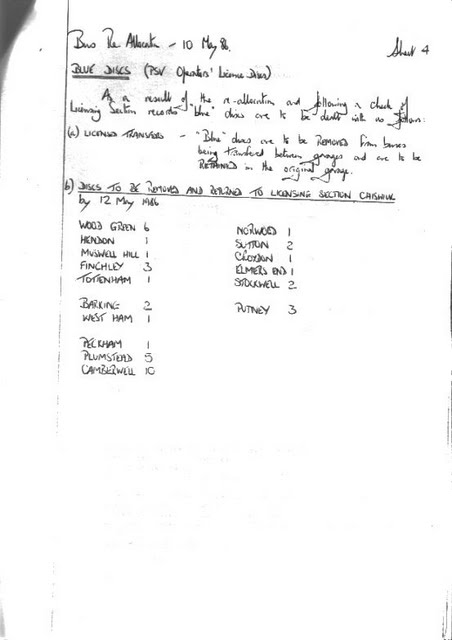 Bus Re Allocation - 10 May 86.
Sheet 4
BLUE DISCS (PSV Operators' Licence Discs)
As a result of the re-allocation and following a check of
Licensing Section records "blue" discs are to be dealt with as follows:
(a) LICENSED TRANSFERS - "Blue" discs are to be REMOVED from buses
being transferred between garages and are to be
RETAINED in the original garage.
b) DISCS TO BE REMOVED AND RETURNED TO LICENSING SECTION CHISWICK
by 12 May 1986
WOOD GREEN 6
HENDON 1
MUSWELL HILL 1
FINCHLEY 3
TOTTENHAM 1
BARKING 2
WEST HAM 1
PECKHAM 1
PLUMSTEAD 5
CAMBERWELL 10
NORWOOD 1
SUTTON 2
CROYDON 1
ELMERS END 1
STOCKWELL 2
PUTNEY 3